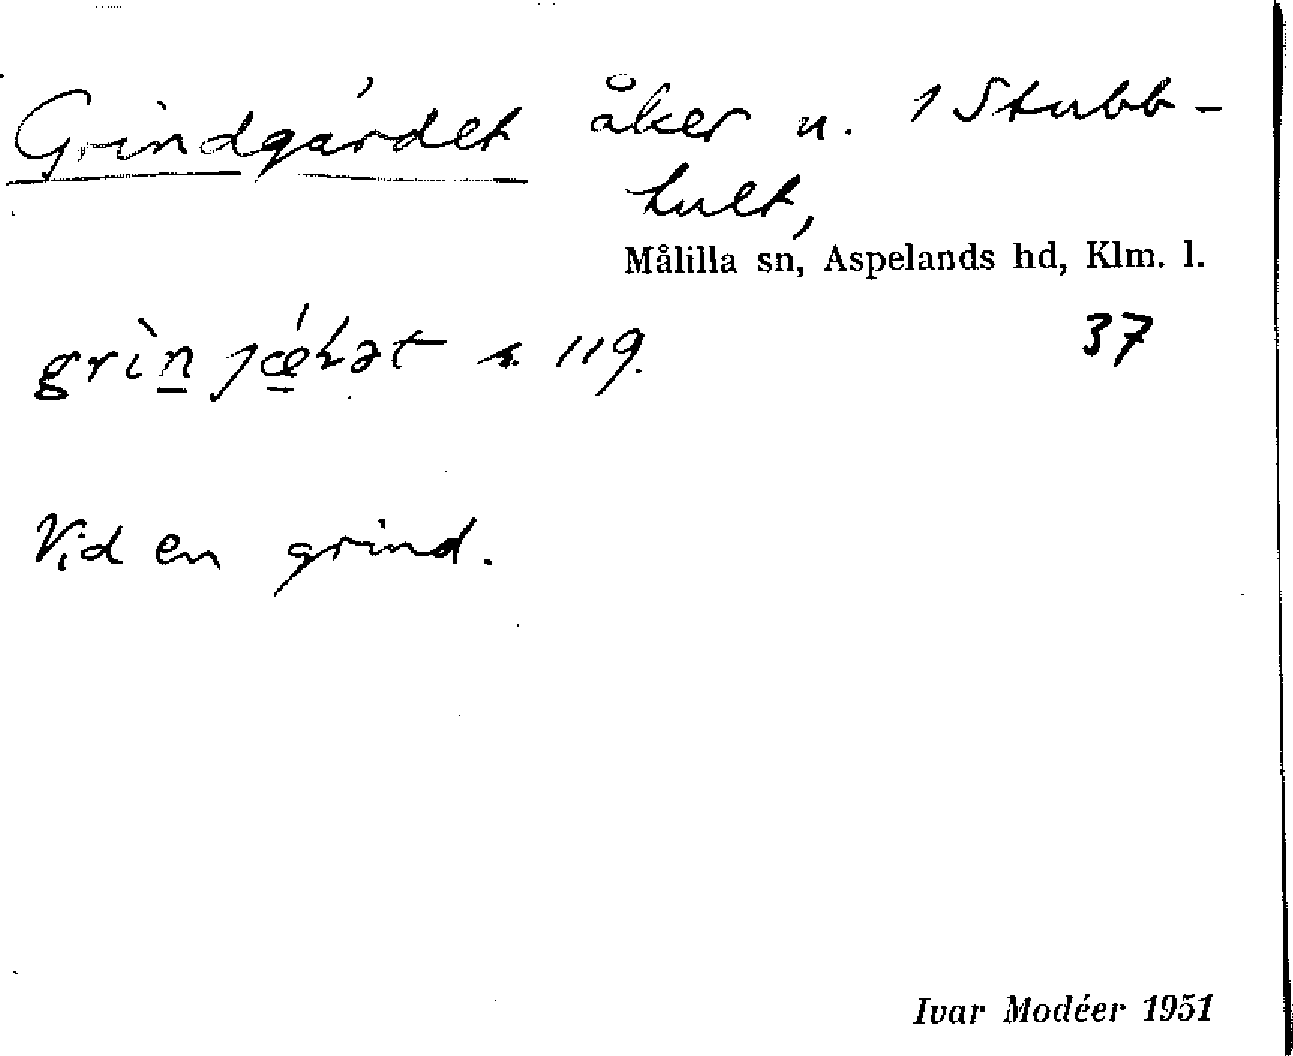 Grindgärdet åker n. 1 Stubb-
hult,
Målilla sn, Aspelands hd, Klm. l.
37
Vid en grind.
Ivar Modéer 1951